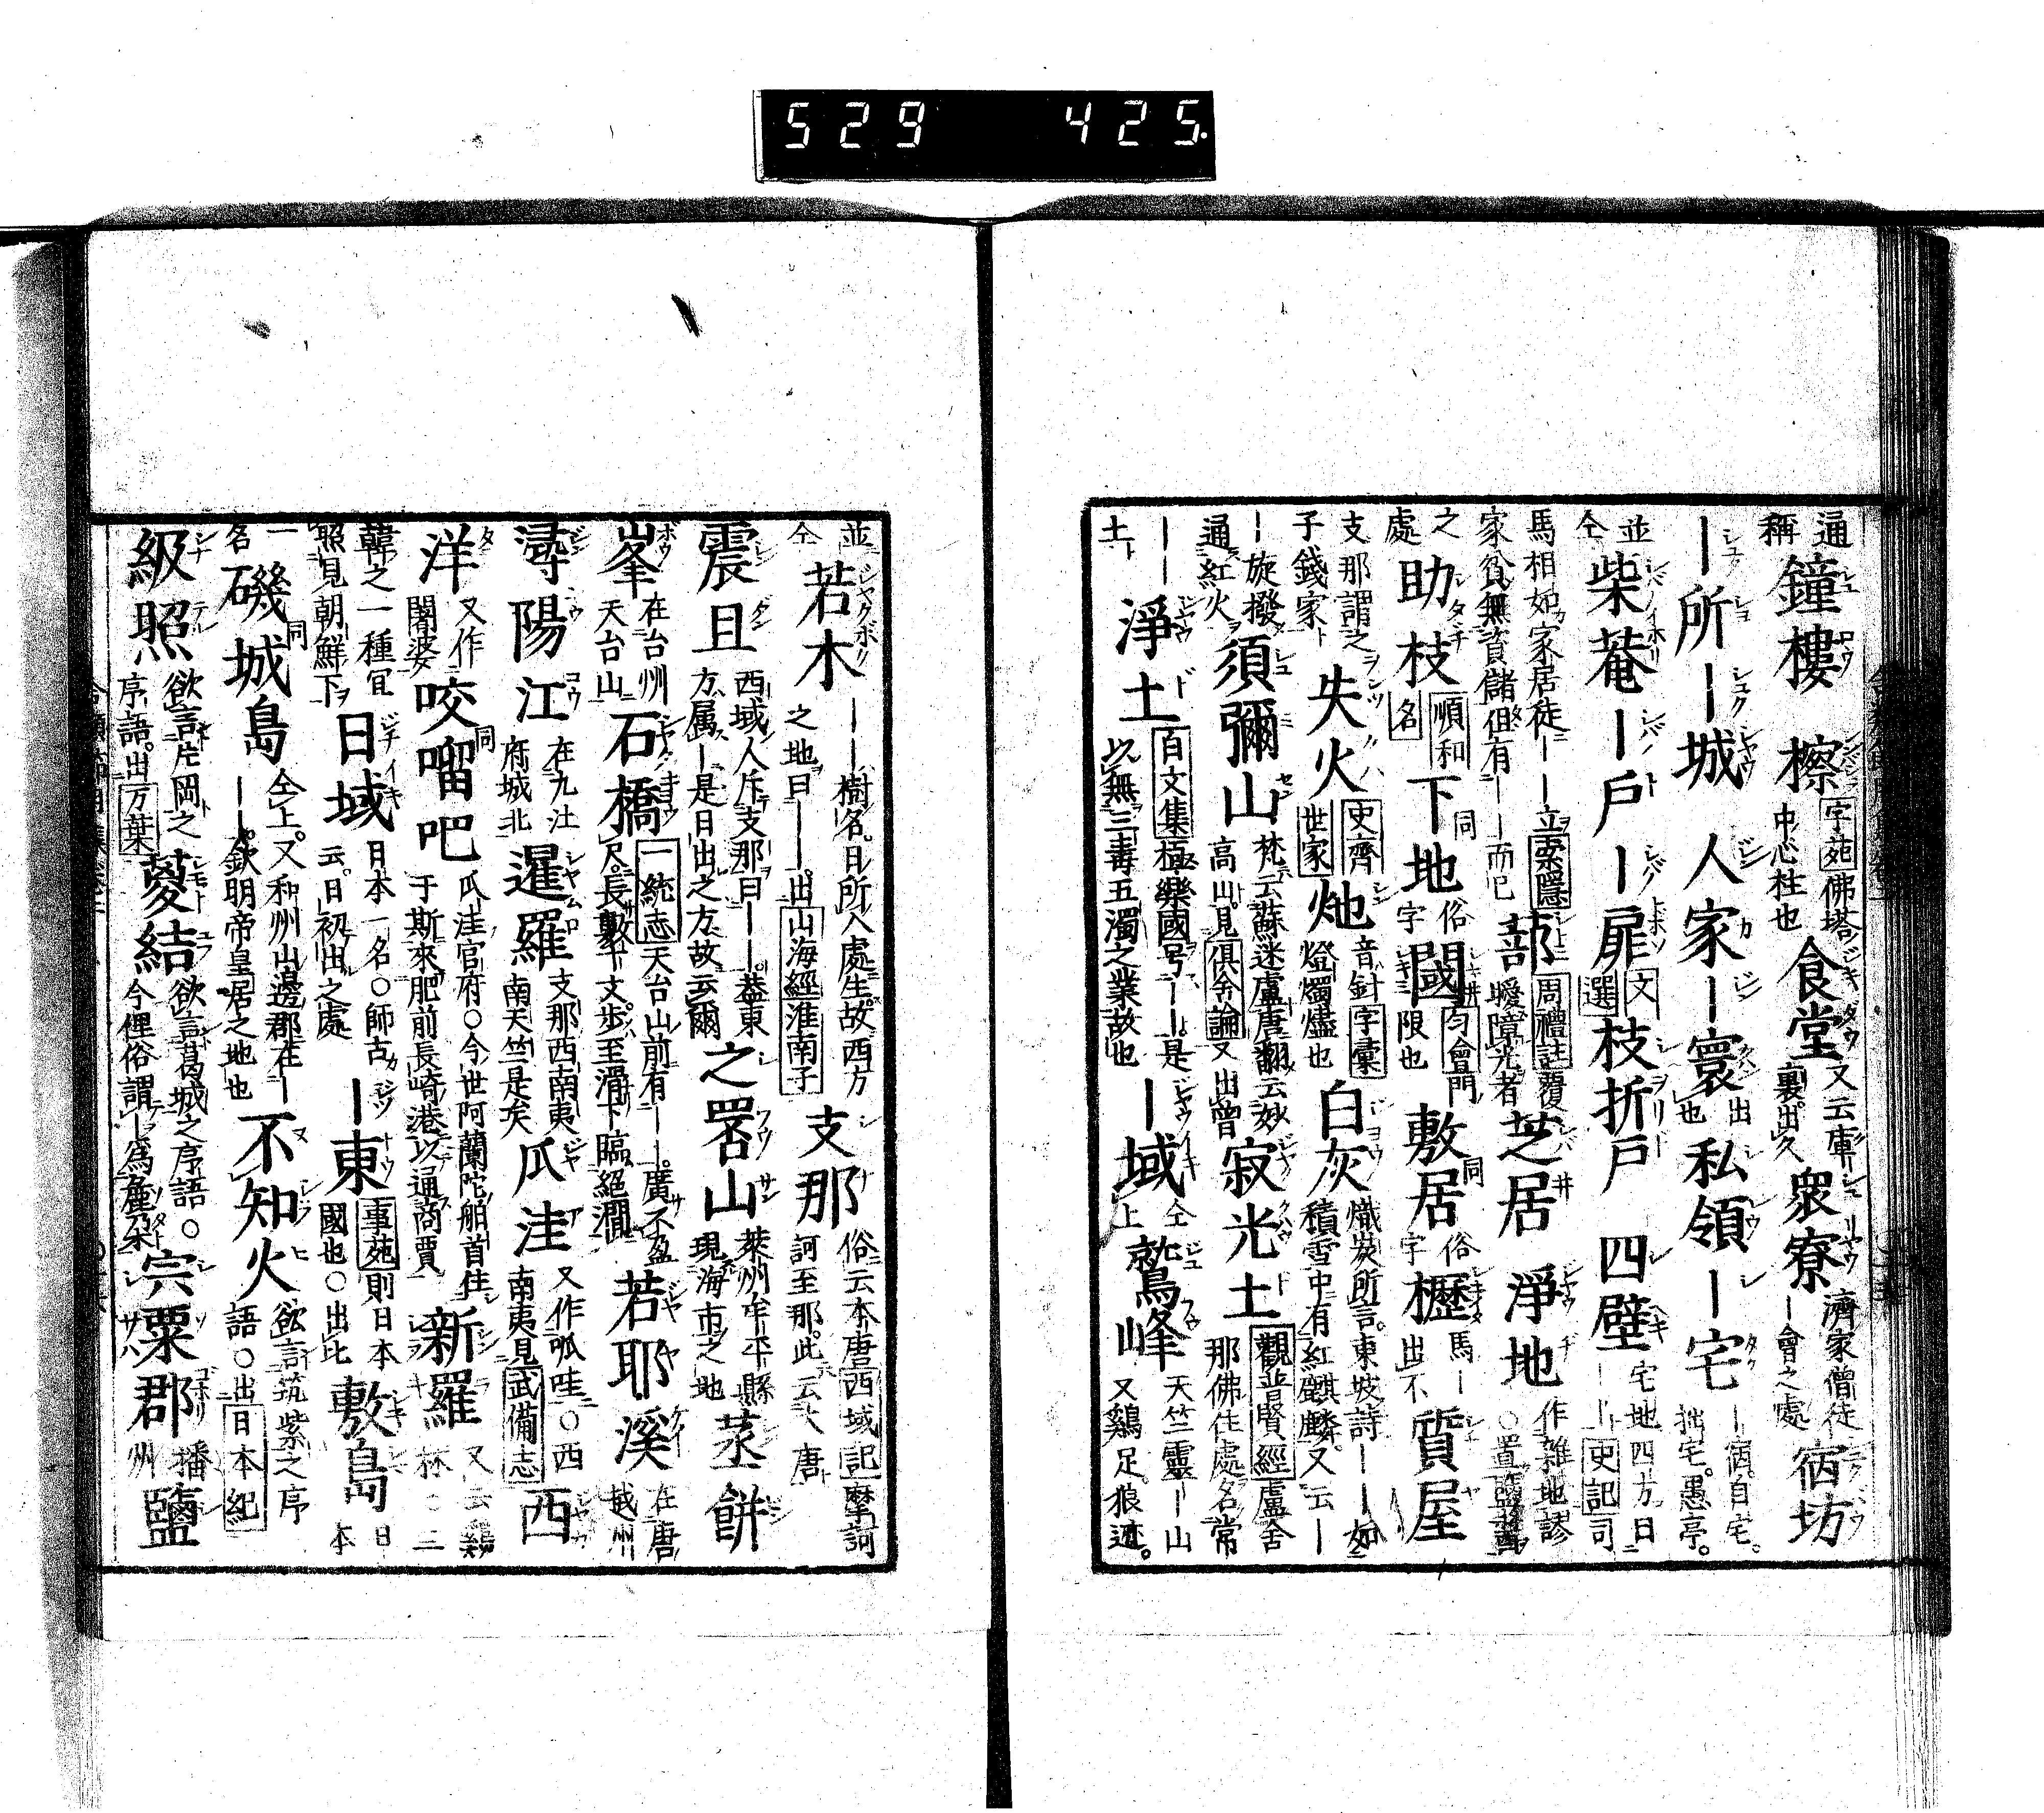 529 425
通稱 鐘樓 檫 字苑佛塔中心柱也 食堂 又云庫裏出久 衆寮 濟家僧徒ー會之處 宿坊
ー所 ー城 人家 ー寰 出也 私領 ー宅 ー病自宅。拙宅。愚亭。
並仝 柴菴 ー戶 ー扉 文選 枝折戶 四壁 宅地四方曰ーー 史記司
馬相如家居徒ーー立索隱家貧無資儲但有ーー而已 蔀 周禮註覆曖障光者 芝居 淨地 作雜地謬○置鹽
之處 助枝 順和名 下地 同俗字 閾 勻會門限也 敷居 同俗字 櫪 馬ー出不 質屋
支那謂之子錢家 失火 史齊世家 灺 音針字彙燈燭燼也 白灰 熾炭所言。東坡詩ーー如積雪中有紅麒麟。又云ー
ー旋撥通紅火 須彌山 梵云蘇迷盧唐翻云妙高山。見俱舍論又出曾 寂光土 觀普賢經盧舍那佛住處名常
ーー土 淨土 百文集極樂國号ーー。是以無三毒五濁之業故也 ー域 仝上 鷲峰 天竺靈ー山又鷄足。狼迹。
並仝 若木 ーー樹名。日所入處生。故西方之地曰ーー。出山海經淮南子 支那 俗云本唐西域記摩訶訶至那。此云大唐
震旦 西域人斥支那曰ーー。蓋東方属ー是日出之方。故云爾 之罘山 萊州牟平縣現海市之地 蒸餅
峯 在台州天台山 石橋 一統志天台山前有ーー。廣不盈尺。長數十丈。步至滑下臨絕澗 若耶溪 在唐越州
潯陽江 在九江府城北 暹羅 支那西南夷南天竺是矣 瓜洼 又作呱哇○西南夷見武備志 西
洋 又作闍婆 咬𠺕吧 同 瓜洼官府○今世阿蘭陀舶首住于斯來肥前長崎港以通商賈 新羅 又云鷄林○二
韓之一種冝照見朝鮮下 日域 日本一名○師古云。日初出之處 ー東 事苑則日本國也○出比 敷島 日本
一名 磯城島 同 仝上。又和州山邊郡在ーーー。欽明帝皇居之地也 不知火 欲言筑紫之序語○出日本紀
級照 欲言片岡之序語。出万葉 蔓結 欲言葛城之序語○今俚俗謂ー為 宍粟郡 播州 鹽